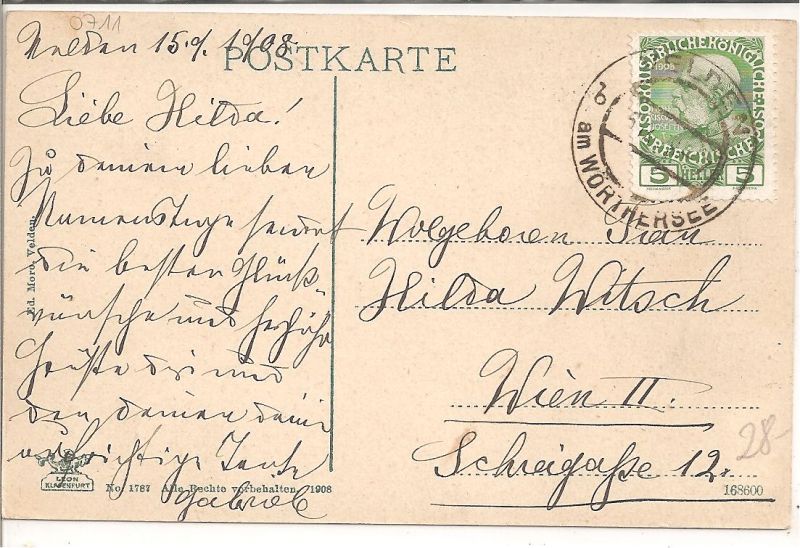 0711
Velden 15./9. 1908.
POSTKARTE
Liebe Hilda!
Zu deinem lieben
Namenstage sendet
die besten Glück-
wünsche und herzliche
Grüße dir und
den deinen deine
aufrichtige Tante
Gabriele
Ed. Moro, Velden.
LEON
KLAGENFURT
No. 1787 Alle Rechte vorbehalten. 1908
KAISERLICHE KÖNIGLICHE
1908
ÖSTERREICHISCHE
5 HELLER 5
VELDEN
am WÖRTHERSEE
b
Wolgeboren Frau
Hilda Witsch
Wien II.
Schreigaße 12.
28-
168600